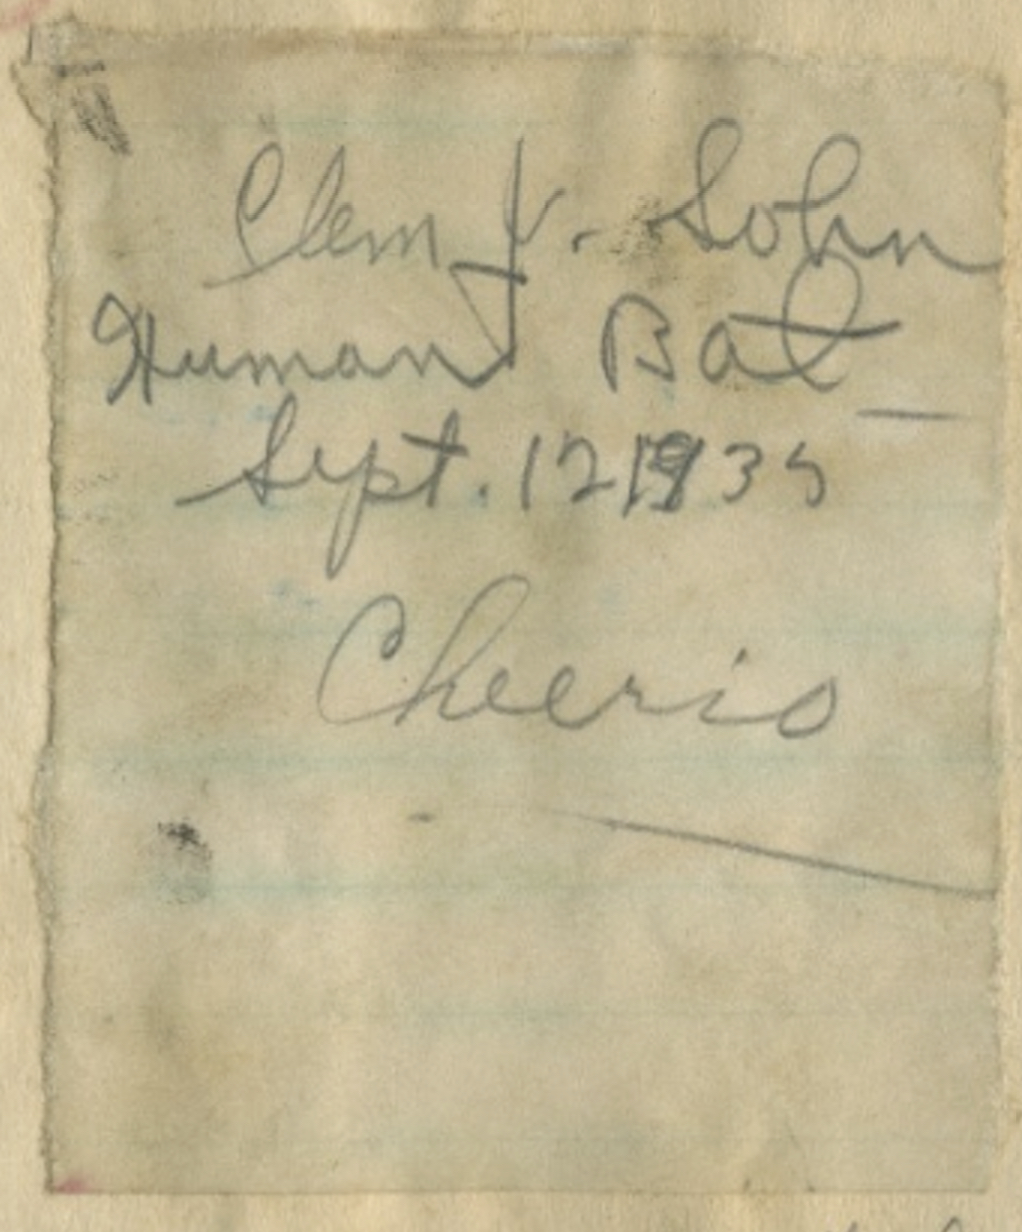 Clem J. Sohn
Human Bat
Sept. 12 1935
Cheerio